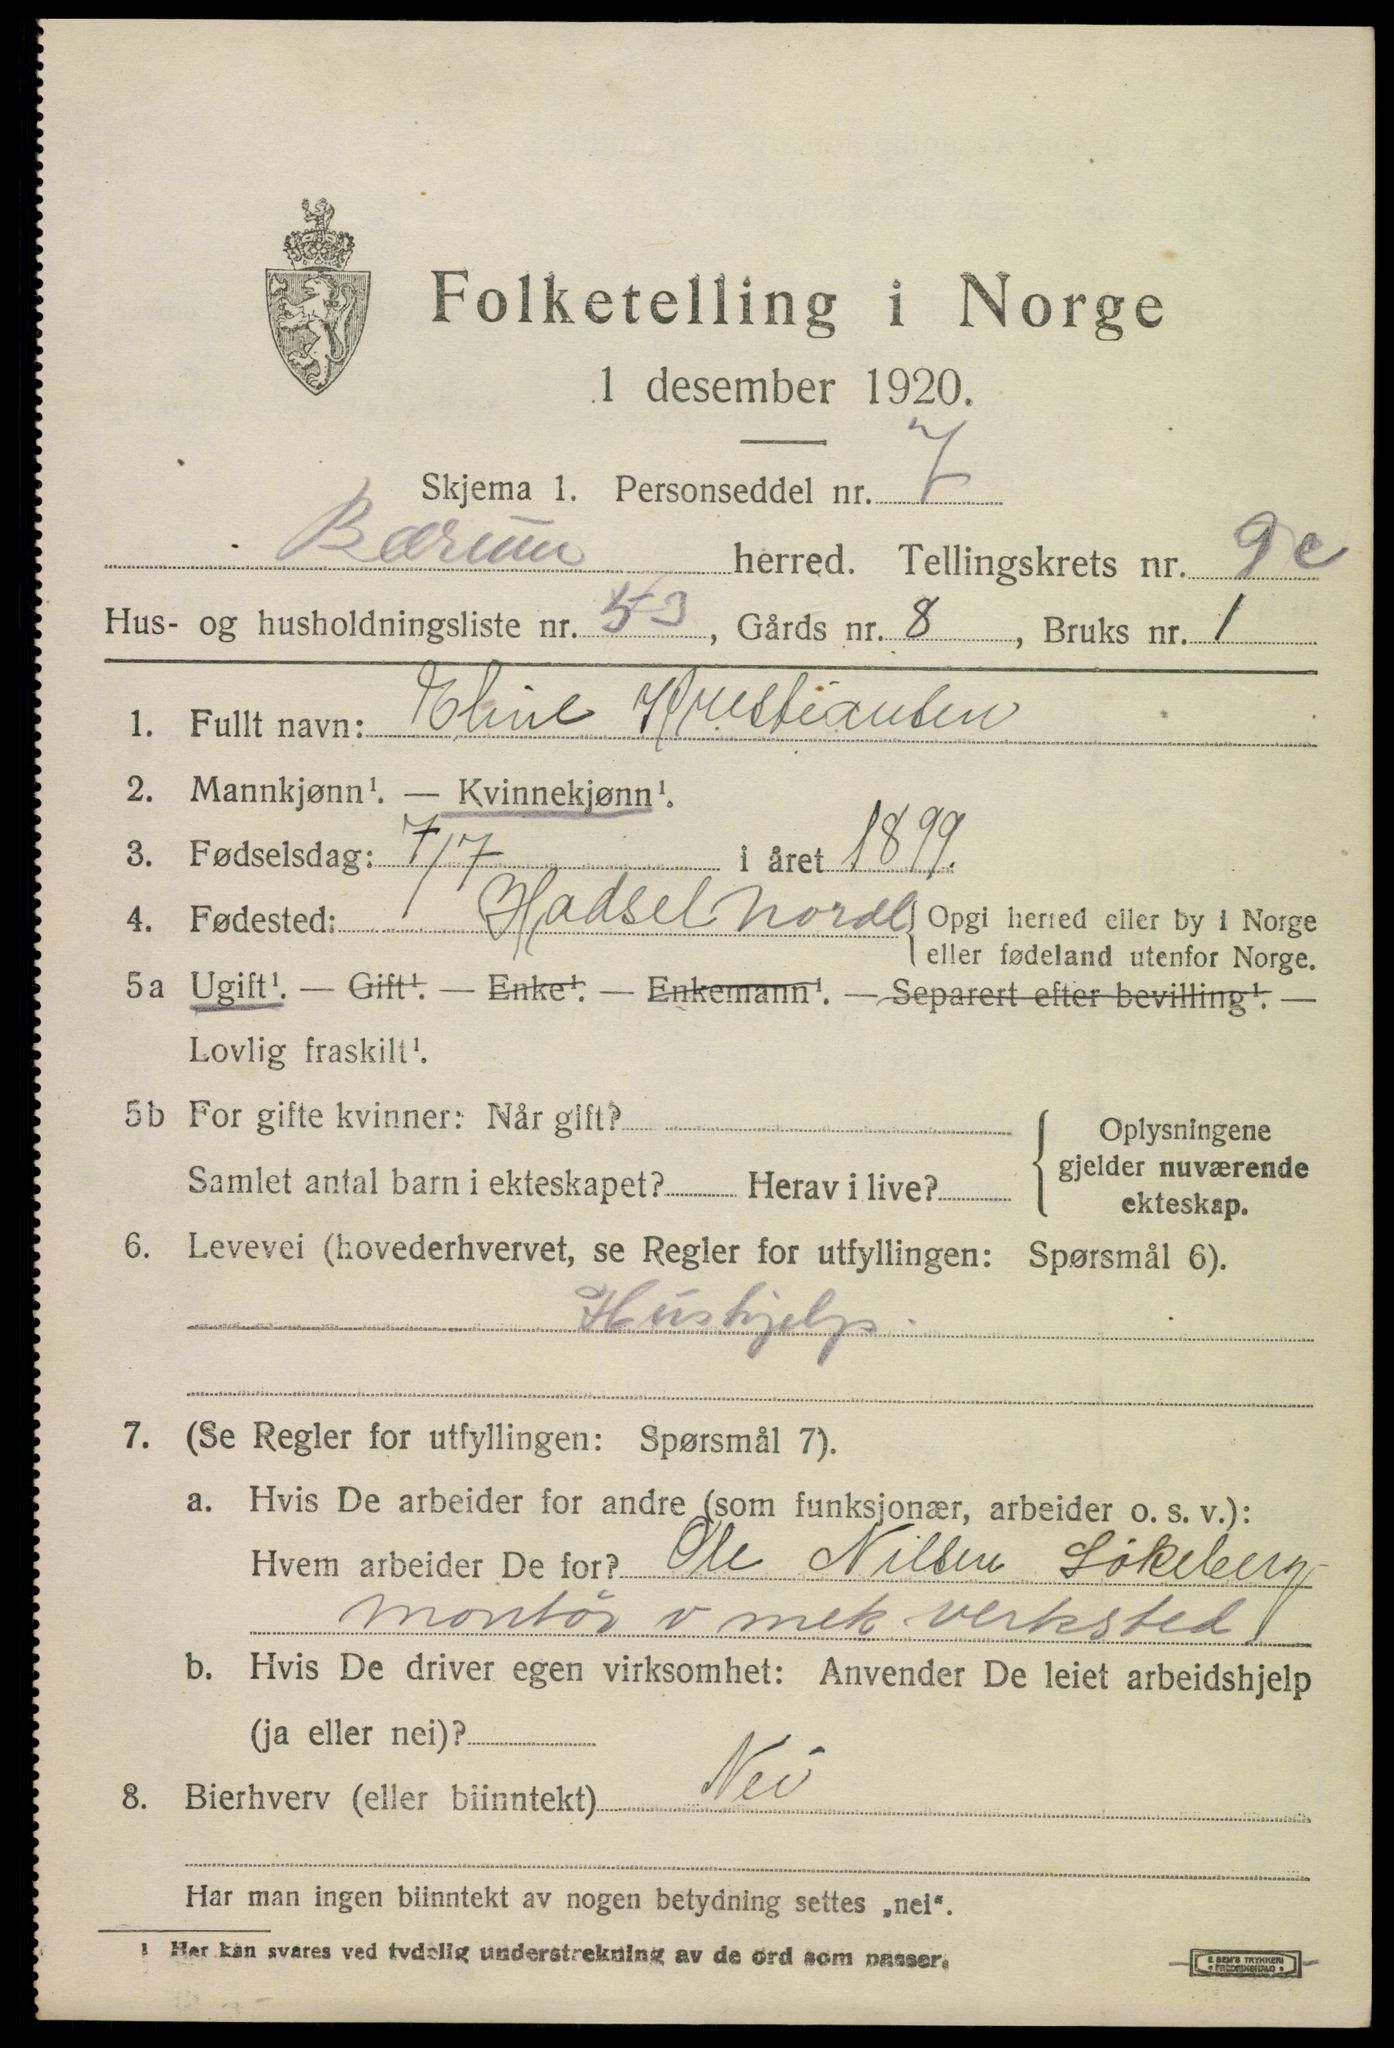 Folketelling i Norge
1 desember 1920.
Skjema 1. Personseddel nr. 7
Bærum herred. Tellingskrets nr. 9c
Hus- og husholdningsliste nr. 53, Gårds nr. 8, Bruks nr. 1
1. Fullt navn: Eline Kristiansen
2. Mannkjønn¹. — Kvinnekjønn¹.
3. Fødselsdag: 7/7 i året 1899.
4. Fødested: Hadsel Nordl { Opgi herred eller by i Norge
eller fødeland utenfor Norge.
5a Ugift¹. — Gift¹. — Enke¹. — Enkemann¹. — Separert efter bevilling¹. —
Lovlig fraskilt¹.
5b For gifte kvinner: Når gift?
Samlet antal barn i ekteskapet? Herav i live?
{ Oplysningene
gjelder nuværende
ekteskap.
6. Levevei (hovederhvervet, se Regler for utfyllingen: Spørsmål 6).
Hushjelp.
7. (Se Regler for utfyllingen: Spørsmål 7).
a. Hvis De arbeider for andre (som funksjonær, arbeider o. s. v.):
Hvem arbeider De for? Ole Nilsen Løkeberg
montør v mek verksted
b. Hvis De driver egen virksomhet: Anvender De leiet arbeidshjelp
(ja eller nei)?
8. Bierhverv (eller biinntekt) Nei
Har man ingen biinntekt av nogen betydning settes „nei“.
1 Her kan svares ved tydelig understrekning av de ord som passer.